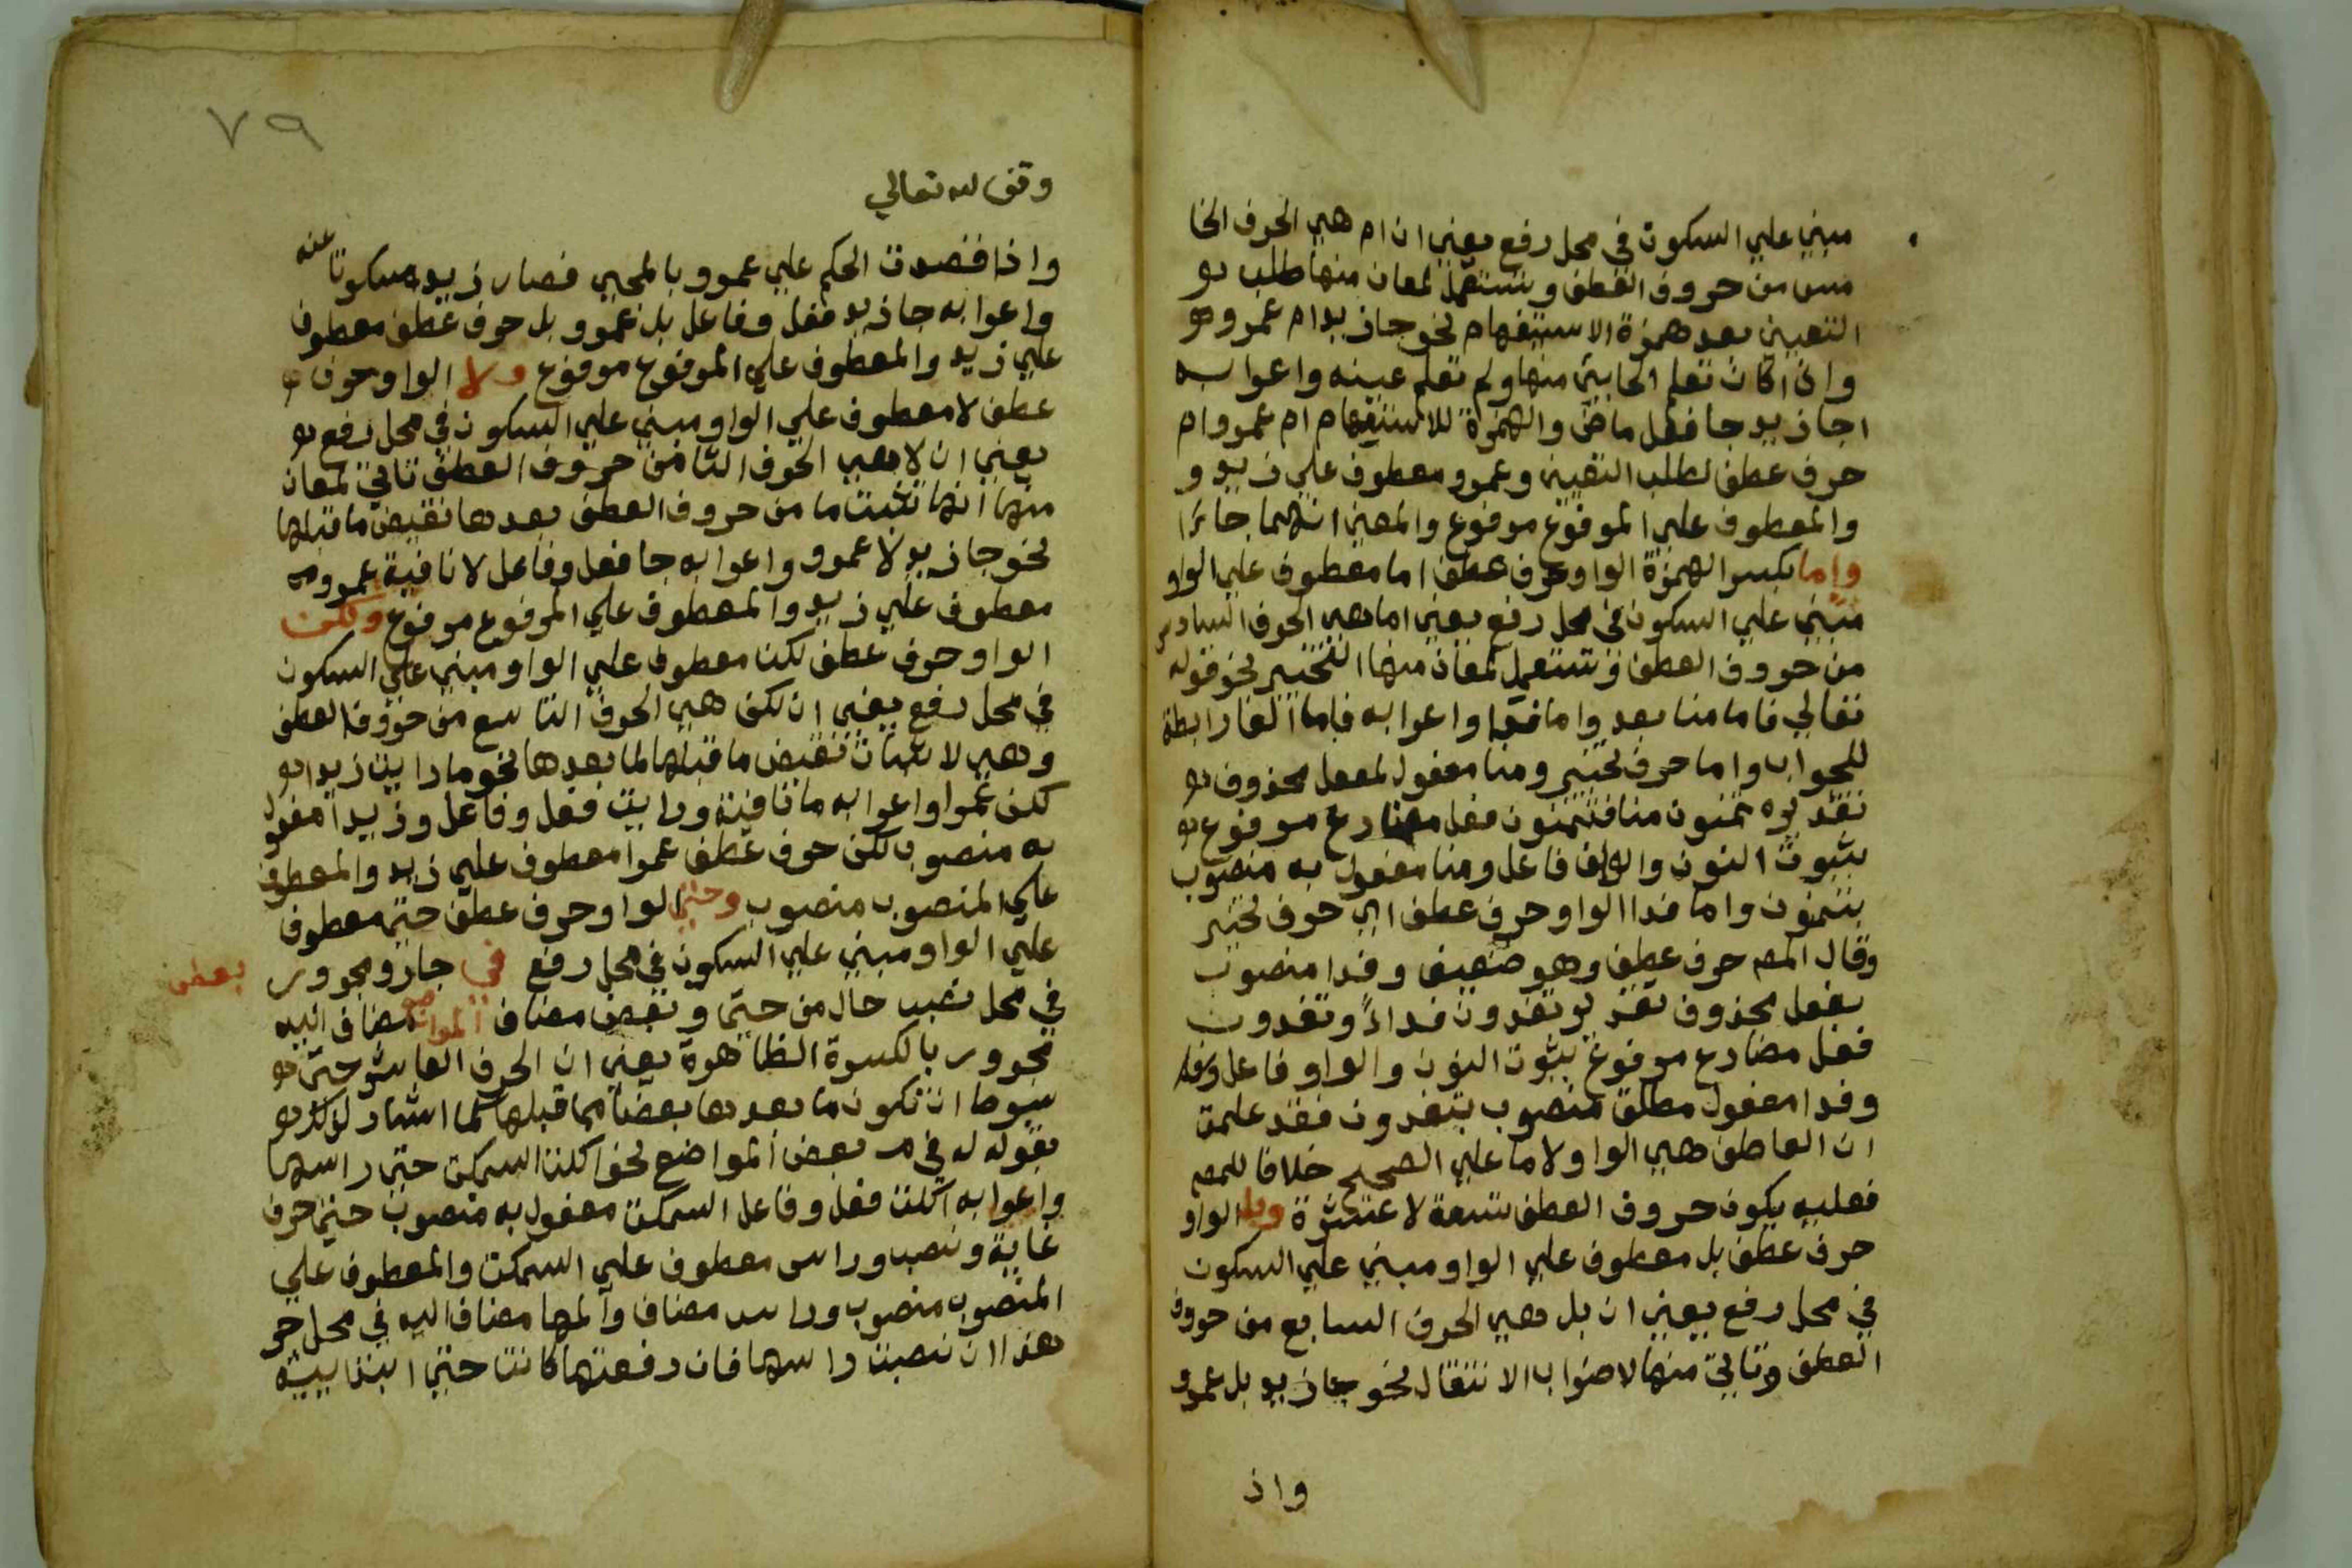 مبني علي السكون في محل رفع يعني ان ام هي الحرف الخا
مس من حروف العطف وتستعمل لمعان منها طلب
التعيين بعد همزة الاستفهام نحو جاز يد ام عمرو
واذا كان تعلم الجايئ منهما ولم تعلم عينه واعرابه
اجا زيد جا فعل ماض والهمزة للاستفهام ام عمرو ام
حرف عطف لطلب التعيين وعمرو معطوف علي زيد و
والمعطوف علي المرفوع مرفوع والمعني انهما جائزا
واما بكسر الهمزة الواو حرف عطف اما معطوف علي الواو
مبني علي السكون في محل رفع يعني اما هي الحرف السادس
من حروف العطف وتستعمل لمعان منها التخيير نحو قوله
تعالي فاما منا بعد واما فدا واعرابه فاما الفا رابطة
للجواب واما حرف تخيير ومنا مفعول لفعل محذوف
تقديره تمنون منا فتمنون فعل مضارع مرفوع
بثبوت النون والواو فاعل ومنا مفعول به منصوب
بتمنون واما فدا الواو حرف عطف اي حرف تخيير
وقال المص حرف عطف وهو ضعيف وفدا منصوب
بفعل محذوف تقديره تفدون فداً وتفدون
فعل مضارع مرفوع بثبوت النون والواو فاعل
وفدا مفعول مطلق منصوب بتفدون فقد علمت
ان العاطف هي الواو لا اما علي الصحيح خلافا للمص
فعليه يكون حروف العطف تسعة لا عشرة وبل الواو
حرف عطف بل معطوف علي الواو مبني علي السكون
في محل رفع يعني ان بل هي الحرف السابع من حروف
العطف وتاتي منها لاضراب الانتقال نحو جاز يد بل عمرو
واذ
٧٩
وقف لله تعالي
واذا قصدت الحكم علي عمرو بالمجي فصار زيد مسكوتا عنه
واعرابه جاز يد فعل وفاعل بل عمرو بل حرف عطف معطوف
علي زيد والمعطوف علي المرفوع مرفوع ولا الواو حرف
عطف لا معطوف علي الواو مبني علي السكون في محل رفع
يعني ان لا هي الحرف الثامن حروف العطف تاتي لمعان
منها انها تثبت ما من حروف العطف بعدها نقيض ما قبلها
نحو جاز يد لا عمرو واعرابه جا فعل وفاعل لا نافية عمرو
معطوف علي زيد والمعطوف علي المرفوع مرفوع ولكن
الواو حرف عطف لكن معطوف علي الواو مبني علي السكون
في محل رفع يعني ان لكن هي الحرف التاسع من حروف العطف
وهي لاثبات نقيض ما قبلها لما بعدها نحو ما رايت زيدا
لكن عمرا واعرابه ما نافية ورايت فعل وفاعل وزيدا مفعول
به منصوب لكن حرف عطف عمرا معطوف علي زيد والمعطوف
علي المنصوب منصوب وحتي الواو حرف عطف حتي معطوف
علي الواو مبني علي السكون في محل رفع في جار ومجرور بعض
في محل نصب حال من حتي وبعض مضاف المواضع مضاف اليه
مجرور بالكسرة الظاهرة يعني ان الحرف العاشر حتي
بشرط ان تكون ما بعدها بعضا مما قبلها كما اشار لذلك
بقوله له في بعض المواضع نحو اكلت السمكت حتي راسها
واعرابه اكلت فعل وفاعل السمكت مفعول به منصوب حتي حرف
غاية ونصب وراس معطوف علي السمكت والمعطوف علي
المنصوب منصوب وراس مضاف والها مضاف اليه في محل جر
هذا ان نصبت راسها فان رفعتها كانت حتي ابتدايية